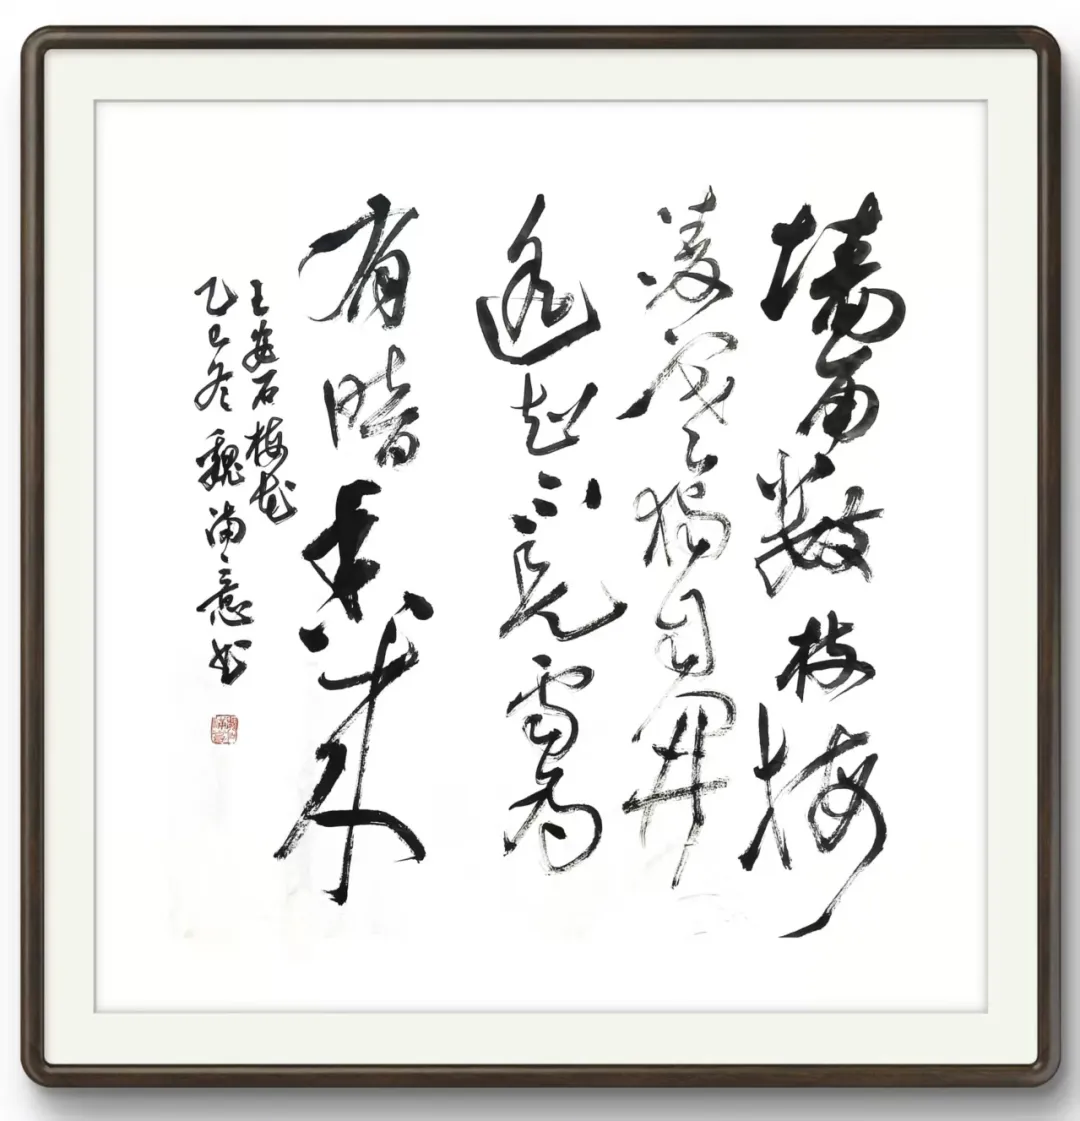 墙角数枝梅
凌寒独自開
遥知不是雪为
有暗香来
王安石梅花
乙巳冬 魏 意书